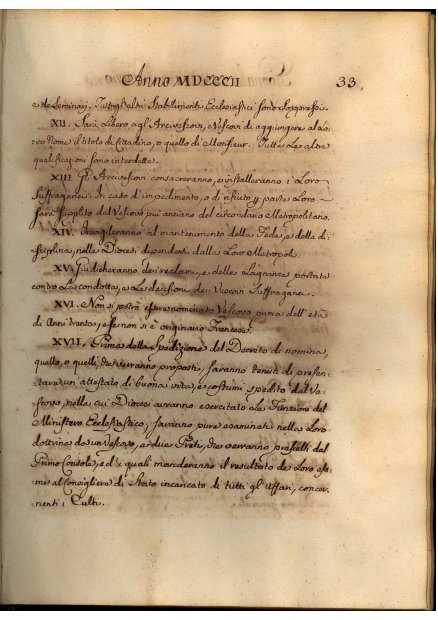 Anno MDCCCII 33.
e de Seminarj. Tutti gli altri Stabilimenti Ecclesiastici sono soppressi.
XII. Sarà Libero agl'Arcivescovi, e Vescovi di aggiungere al Lo-
ro Nome il titolo di Cittadino, o quello di Monsieur. Tutte Le altre
qualificazioni sono interdette.
XIII. Gl'Arcivescovi consacreranno, e installeranno i Loro
Suffraganei. In caso d'impedimento, o di rifiuto p parte Loro
sarà supplito dal Vescovo più anziano del circondario Metropolitano.
XIV. Invigileranno al mantenimento della Fede, e della di-
sciplina, nelle Diocesi dipendenti dalla Loro Metropoli.
XV. Giudicheranno dei reclami, e delle Lagnanze portate
contro La condotta, e Le decisioni dei Vescovi Suffraganei.
XVI. Non si potrà essere nominato Vescovo prima dell'età
di Anni trenta, e se non si è originario Francese.
XVII. Prima della Spedizione del Decreto di nomina,
quello, o quelli, che verranno proposti, saranno tenuti di presen-
tare un'attestato di buona vita, e costumi spedito dal Ve-
scovo, nella cui Diocesi avranno esercitato Le Funzioni del
Ministero Ecclesiastico; saranno pure esaminati nella Loro
dottrina da un Vescovo, e due Preti, che verranno prescelti dal
Primo Console, ed i quali manderanno il resultato de Loro esa-
me al Consigliere di Stato incaricato di tutti gl'Affari, concer-
nenti i Culti.